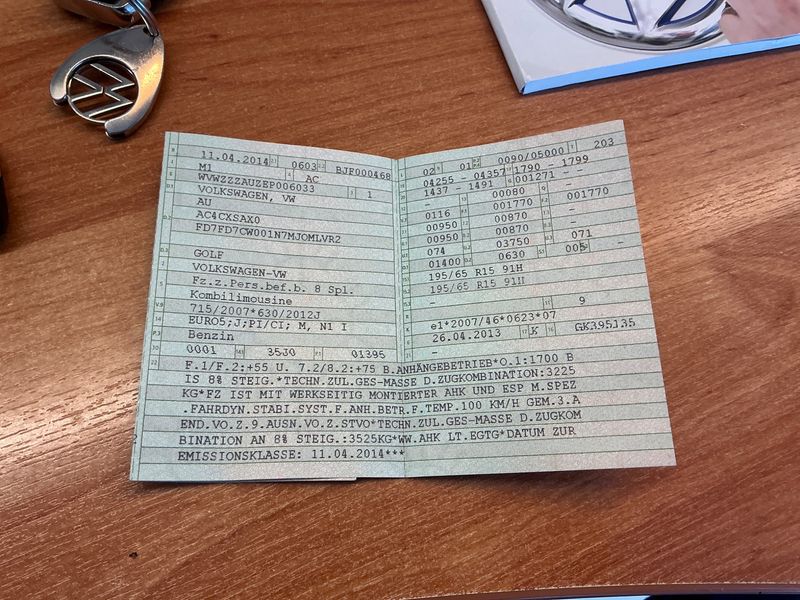 11.04.2014 0603 BJF000468
M1 AC
WVWZZZAUZEP006033 1
VOLKSWAGEN, VW
AU
AC4CXSAX0
FD7FD7CW001N7MJOMLVR2
GOLF
VOLKSWAGEN-VW
Fz.z.Pers.bef.b. 8 Spl.
Kombilimousine
715/2007*630/2012J
EURO5;J;PI/CI; M, N1 I
Benzin
0001 3530 01395
02 01 0090/05000 203
04255 - 04357 1790 - 1799
1437 - 1491 001271 - -
- 00080 -
0116 001770 001770
00950 00870 -
00950 00870 -
074 03750 071
01400 0630 005 -
195/65 R15 91H
195/65 R15 91H
-
- 9
e1*2007/46*0623*07
26.04.2013 K GK395135
-
F.1/F.2:+55 U. 7.2/8.2:+75 B.ANHÄNGEBETRIEB*O.1:1700 B
IS 8% STEIG.*TECHN.ZUL.GES-MASSE D.ZUGKOMBINATION:3225
KG*FZ IST MIT WERKSEITIG MONTIERTER AHK UND ESP M.SPEZ
.FAHRDYN.STABI.SYST.F.ANH.BETR.F.TEMP.100 KM/H GEM.3.A
END.VO.Z.9.AUSN.VO.Z.STVO*TECHN.ZUL.GES-MASSE D.ZUGKOM
BINATION AN 8% STEIG.:3525KG*WW.AHK LT.EGTG*DATUM ZUR
EMISSIONSKLASSE: 11.04.2014***